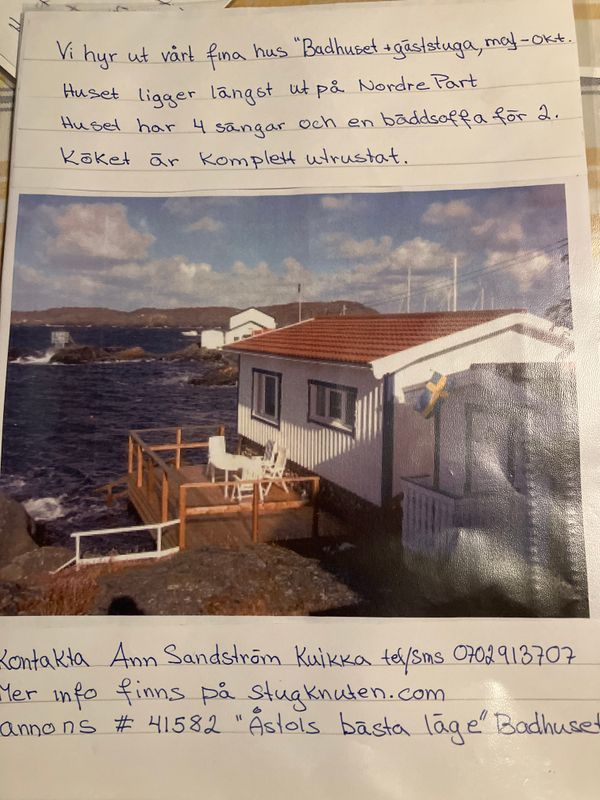 Vi hyr ut vårt fina hus "Badhuset + gäststuga, maj - okt.
Huset ligger längst ut på Nordre Part
Huset har 4 sängar och en bäddsoffa för 2.
Köket är komplett utrustat.
Kontakta Ann Sandström Kuikka tel/sms 0702913707
Mer info finns på stugknuten.com
annons # 41582 "Åstols bästa läge" Badhuset